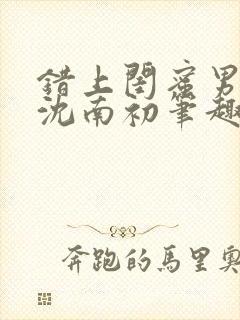 错上閨蜜男
沈南初笔趣
奔跑的馬里奧